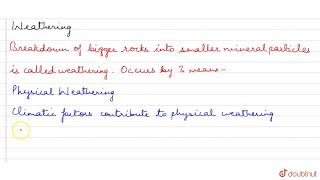 Weathering
Breakdown of bigger rocks into smaller mineral particles
is called weathering. Occurs by 3 means-
Physical Weathering
Climatic factors contribute to physical weathering
doubtnut